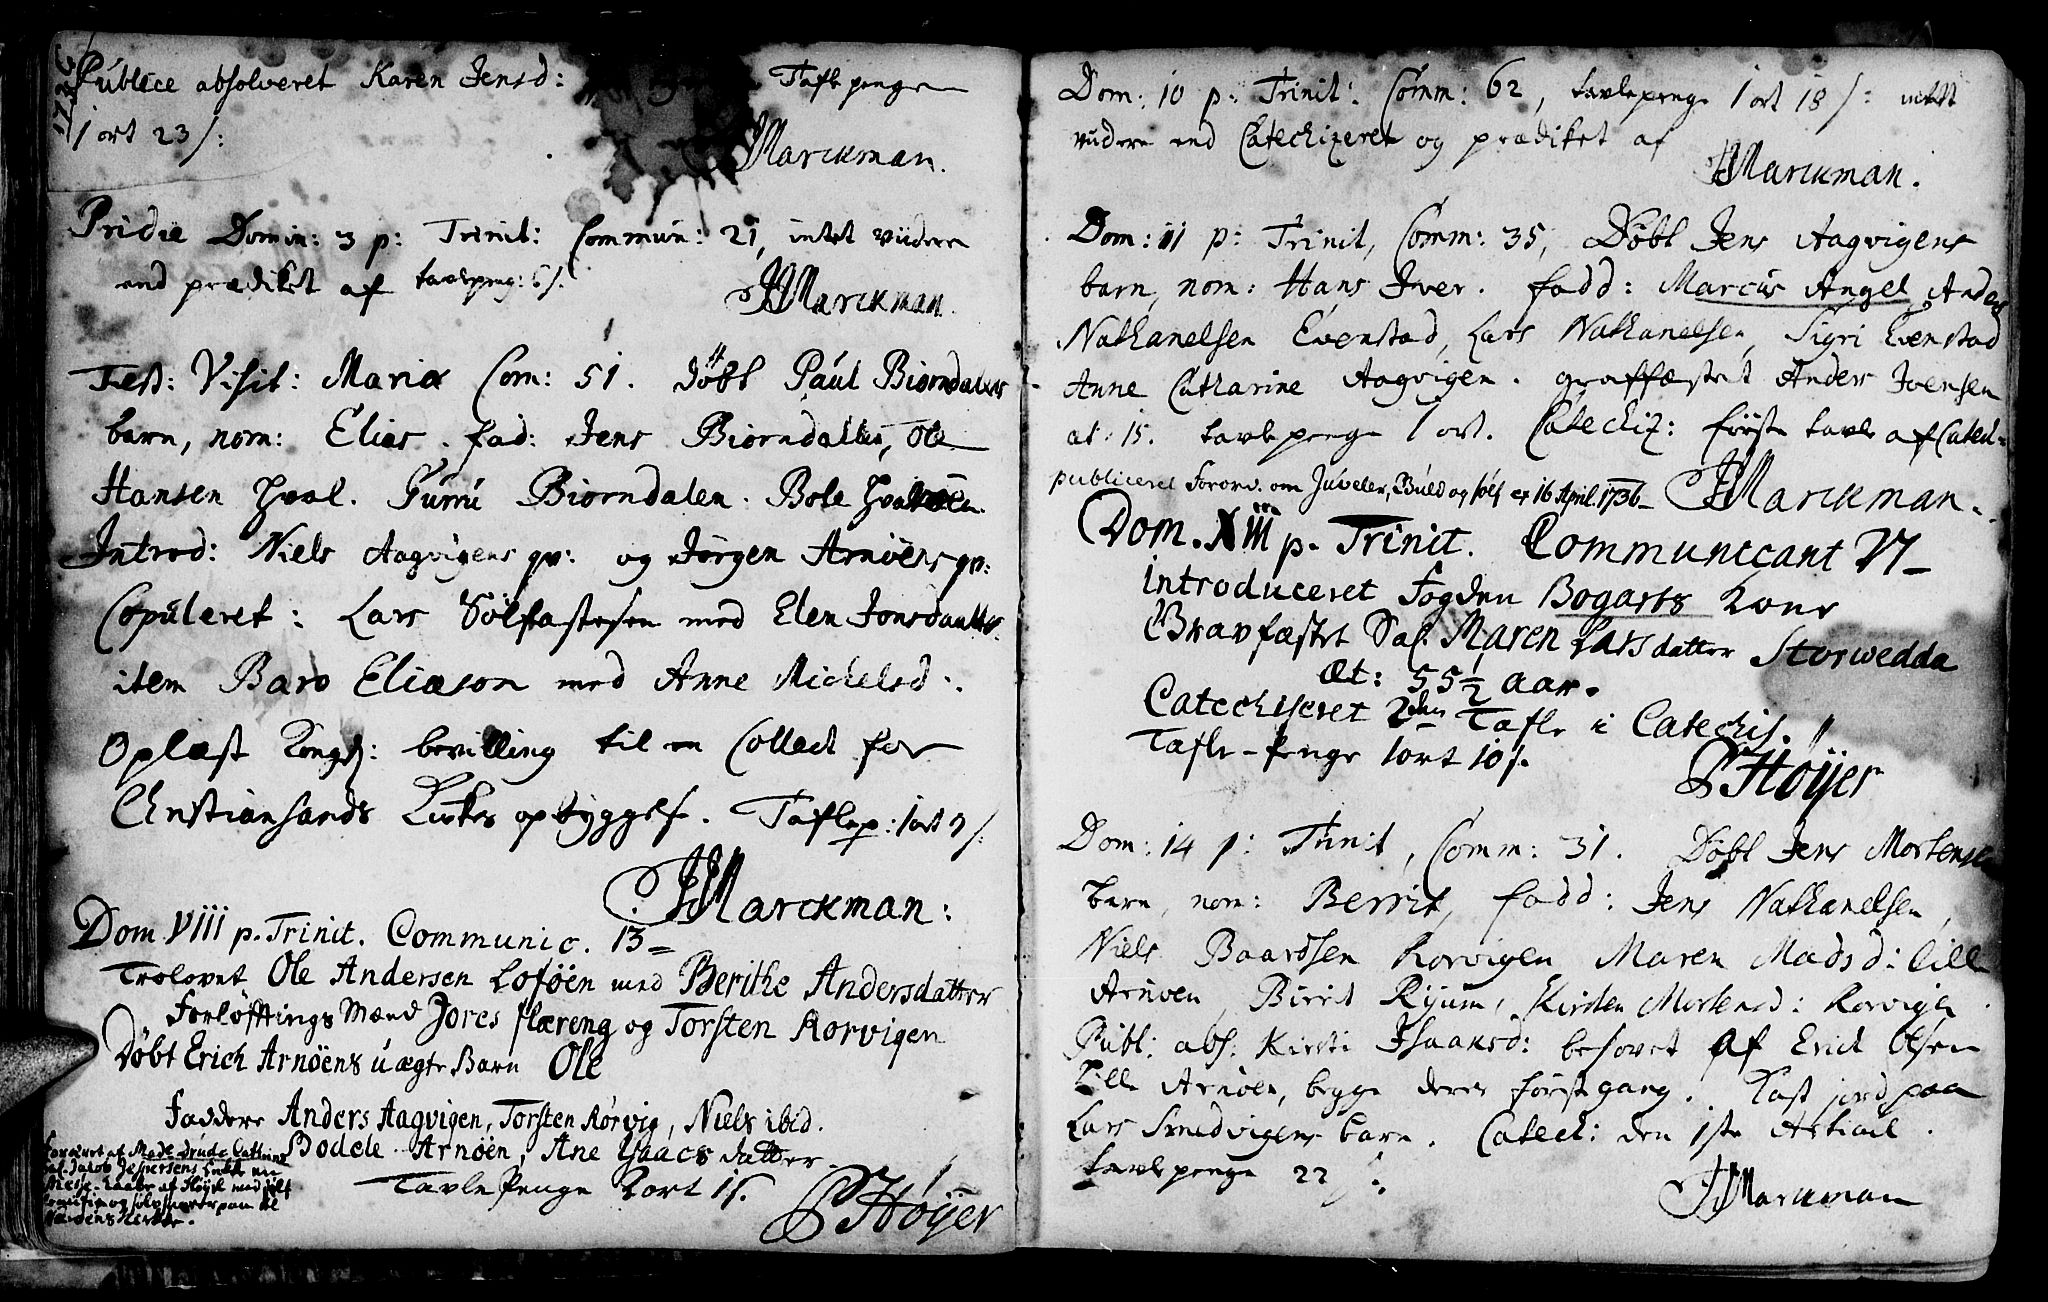 1736
Publice absolveret Karen Jensd: Tafle penge
1 ort 23 s:
JMarckman.
Pridie Domin: 3 p: Trinit: Commun: 21, intet viidere
end prædiket af tavlepeng: 6 s.
JMarckman.
Fest: Visit: Mariæ Com: 51. döbt Paul Biörndalens
barn, nom: Elias. fad: Jens Biorndalen, Ole
Hansen Hval. Gurru Biorndalen. Bole
Introd: Niels Aagvigens qv: og Jörgen Arnöens qv:
Copuleret: Lars Sölfastesen med Elen Jonsdaatter.
item Baro Eliæson med Anne Michelsd:.
Oplæst Kongl: bevilling til en Collect for
Christiansands Kirkes opbyggelse. Taflep: 1 ort 9 s:
JMarckman:
Dom VIII p. Trinit. Communic. 13
Trolovet Ole Andersen Loföen med Berithe Andersdatter
Forlöfftings Mænd Jores flæreng og Torsten Rorvigen
Döbt Erich Arnöens uægte Barn Ole
Faddere Anders Aagvigen, Torsten Rörvig, Niels ibid.
Bodele Arnöen, Ane Isaacs datter
Foræret af Mad. Drude Cathrine
Sal. Jacob Jespersens Enke en
Messe
Nærøens Kirke.
Tavle Penge 2 ort 1 s.
PHöijer
Dom: 10 p: Trinit: Comm: 62, tavlepenge 1 ort 18 s: intet
viidere end Catechizeret og prædiket af
JMarckman.
Dom: 11 p: Trinit, Comm: 35, Döbt Jens Aagvigens
barn, nom: Hans Iver. fadd: Marcus Angel, Anders
Nathanelsen Evenstad, Lars Nathanelsen, Sigri Evenstad
Anne Catharine Aagvigen. graffæstet Anders Joensen
æt: 15. tavlepenge 1 ort. Catechiz: förste tavle af Catech:
publiceret Forord: om Juveler, Guld og sölf af 16 April 1736
JMarckman.
Dom. XIII p. Trinit. Communicant 21
introduceret Fogden Bogarts Kone
Gravfæstet Sal. Maren Larsdatter Storwedda
Æt: 55½ aar.
Catechiseret 2den Tafle i Catechis.
Tafle-penge 1 ort 10 s.
PHöijer
Dom: 14 p: Trinit, Comm: 31. Döbt Jens Mortensens
barn, nom: Berrit, fadd: Jens Nathanelsen,
Niels Baardsen Rorvigen Maren Madsd: lille
Arnöen, Birrit Ryum, Kirsten Mortensd: Rorvigen.
Publ: abs: Kirsti Isaaksd: besovet af Erich Olsen
Lille Arnöen, begge deres förste gang. Kast jord paa
Lars Smedvigens barn. Catech: den 1ste Artikel.
tavlepenge 22 s:
JMarckman